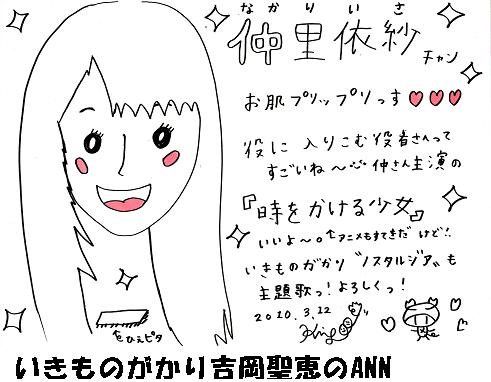 なかりいさ
仲里依紗チャン
お肌プリップリっす♥♥♥
役に入りこむ役者さんって
すごいね〜 仲さん主演の
『時をかける少女』
いいよ〜。↑アニメもすてきだけど!
いきものがかり〝ノスタルジア〟も
主題歌っ!よろしくっ!
2010.3.22
←ひえピタ
いきものがかり吉岡聖恵のANN